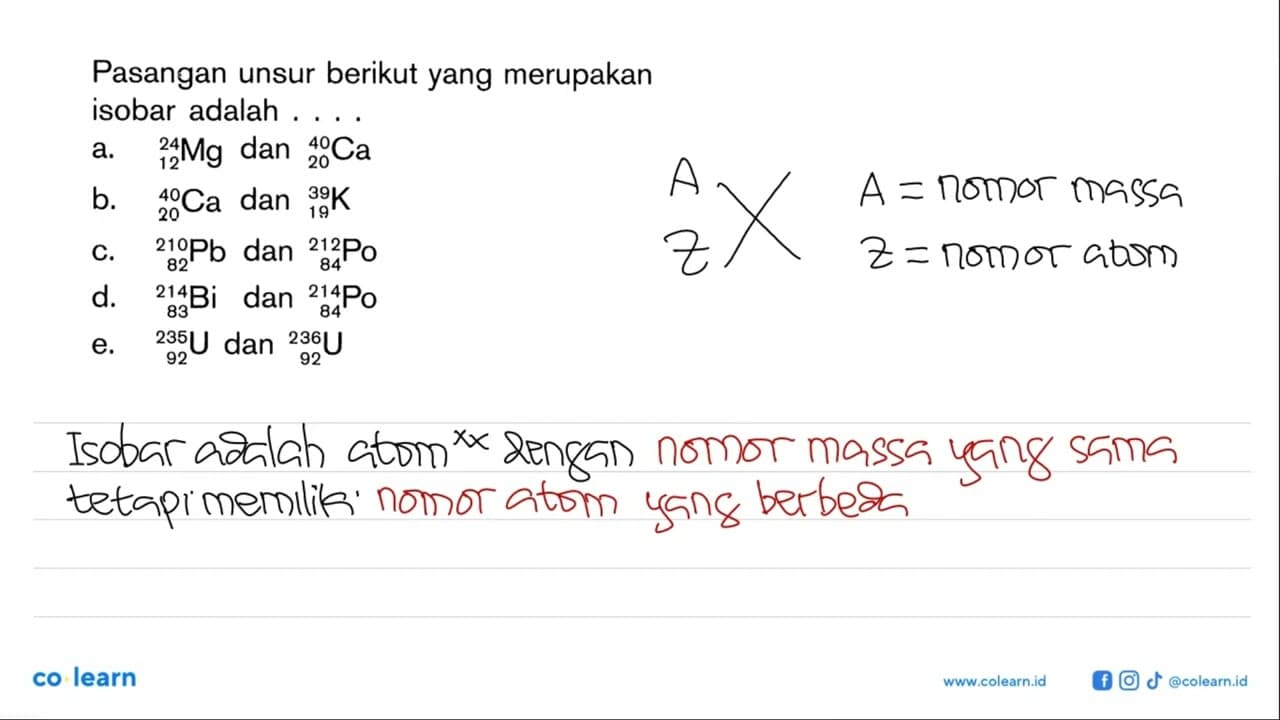 Pasangan unsur berikut yang merupakan
isobar adalah . . . .
a. ²⁴₁₂Mg dan ⁴⁰₂₀Ca
b. ⁴⁰₂₀Ca dan ³⁹₁₉K
c. ²¹⁰₈₂Pb dan ²¹²₈₄Po
d. ²¹⁴₈₃Bi dan ²¹⁴₈₄Po
e. ²³⁵₉₂U dan ²³⁶₉₂U
A
Z X
A = nomor massa
Z = nomor atom
Isobar adalah atom ˣˣ dengan nomor massa yang sama
tetapi memiliki nomor atom yang berbeda
co learn
www.colearn.id @colearn.id